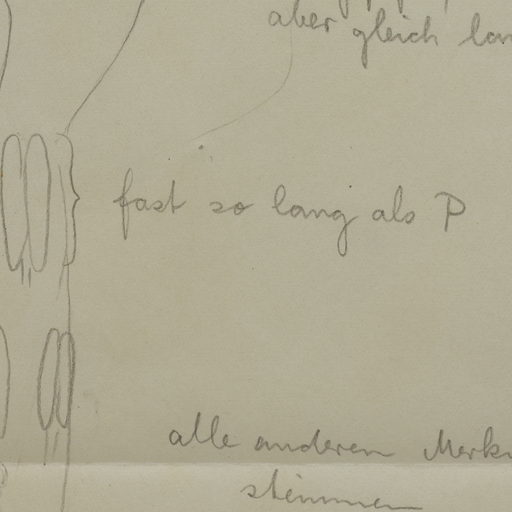 aber gleich
fast so lang als P
alle anderen
stimmen